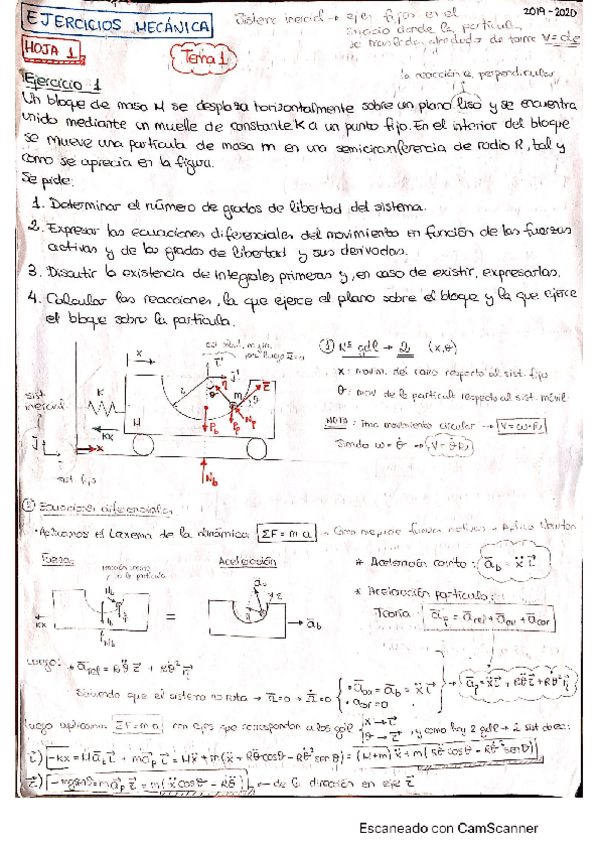 EJERCICIOS MECÁNICA
Sistema inercial → ejes fijos en el
2019-2020
espacio donde la partícula
se traslada, alrededor de forma V=cte
HOJA 1
Tema 1
la reacción es perpendicular
Ejercicio 1
Un bloque de masa M se desplaza horizontalmente sobre un plano liso y se encuentra
unido mediante un muelle de constante K a un punto fijo. En el interior del bloque
se mueve una partícula de masa m en una semicircunferencia de radio R, tal y
como se aprecia en la figura.
Se pide:
1. Determinar el número de grados de libertad del sistema.
2. Expresar las ecuaciones diferenciales del movimiento en función de las fuerzas
activas y de los grados de libertad y sus derivadas.
3. Discutir la existencia de integrales primeras y, en caso de existir, expresarlas.
4. Calcular las reacciones, la que ejerce el plano sobre el bloque y la que ejerce
el bloque sobre la partícula.
① Nº gdl → 2 (x,θ)
x: movim. del carro respecto al sist. fijo
θ: mov de la partícula respecto al sist. móvil
NOTA: Tma movimiento circular → V=ω·R
Siendo ω=θ̇ → V=θ̇R
x
K
M
m
kx
sist.
inercial
② Ecuaciones diferenciales
Aplicamos el teorema de la dinámica ΣF=ma
Fuerzas
Aceleración
* Aceleración carrito: āb = ẍ ī
* Aceleración partícula:
Teoría: āp = ārel + āar + ācor
kx
=
āb
Luego: ārel = Rθ̈ τ̄ + Rθ̇² n̄
Sabiendo que el sistema no rota → Ω=0 → Ω̇=0
āar = āb = ẍ ī
ācor = 0
āp = ẍ ī + Rθ̈ τ̄ + Rθ̇² n̄
Luego aplicamos ΣF=ma con ejes que correspondan a los gdl
x → ī
θ → τ̄
y como hay 2 gdl → 2
ī) -kx = Māb ī + māp ī = Mẍ + m(ẍ + Rθ̈cosθ - Rθ̇²senθ) = (M+m)ẍ + m(Rθ̈cosθ - Rθ̇²senθ)
τ̄) -mgsenθ = māp τ̄ = m(ẍcosθ - Rθ̈)
Escaneado con CamScanner